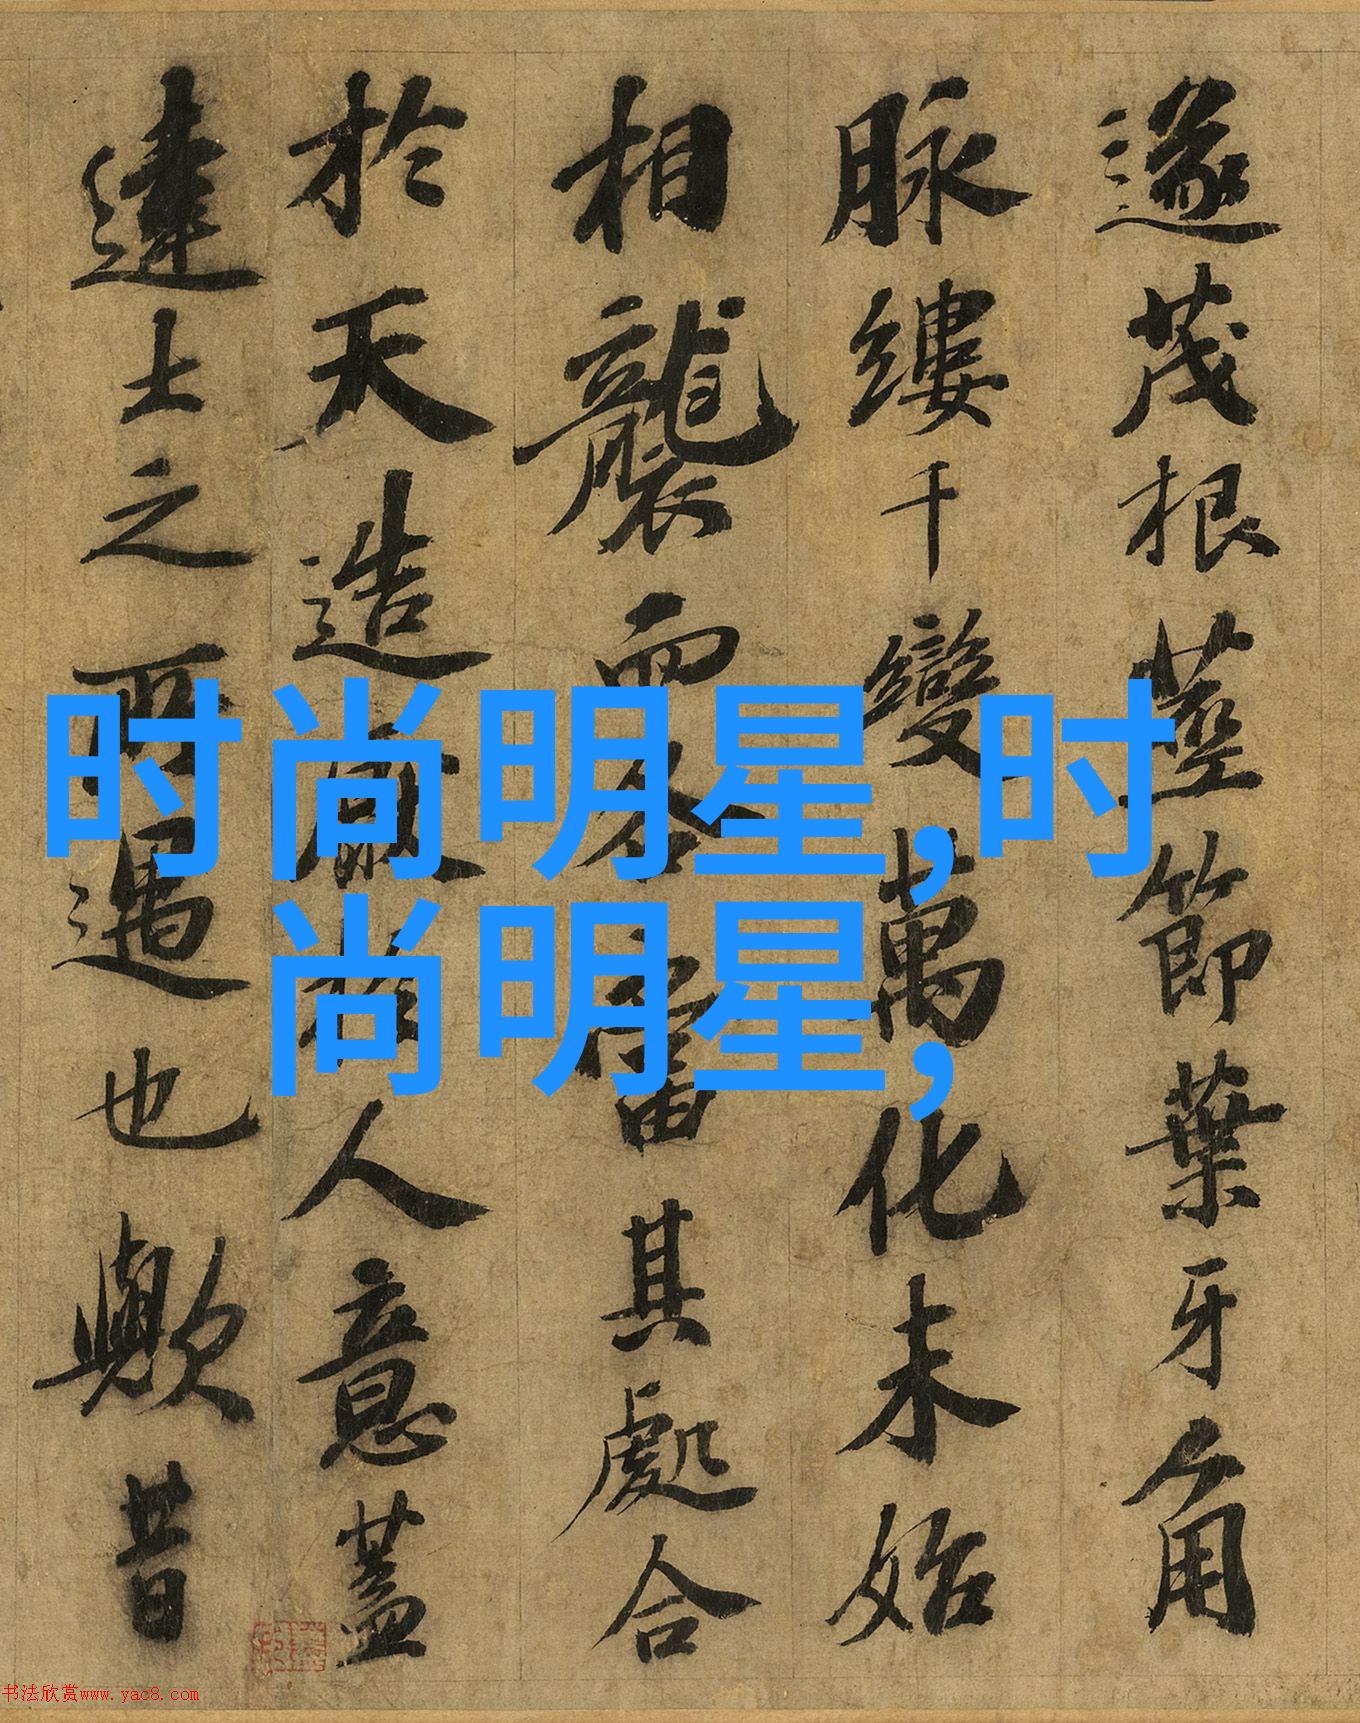 遂茂根莖節葉牙角
脉縷千變萬化未始
相襲而各當其處合
於天造厭於人意蓋
達士之所遇也歟昔
时尚明星,时
尚明星,
书法欣赏www.yac8.com